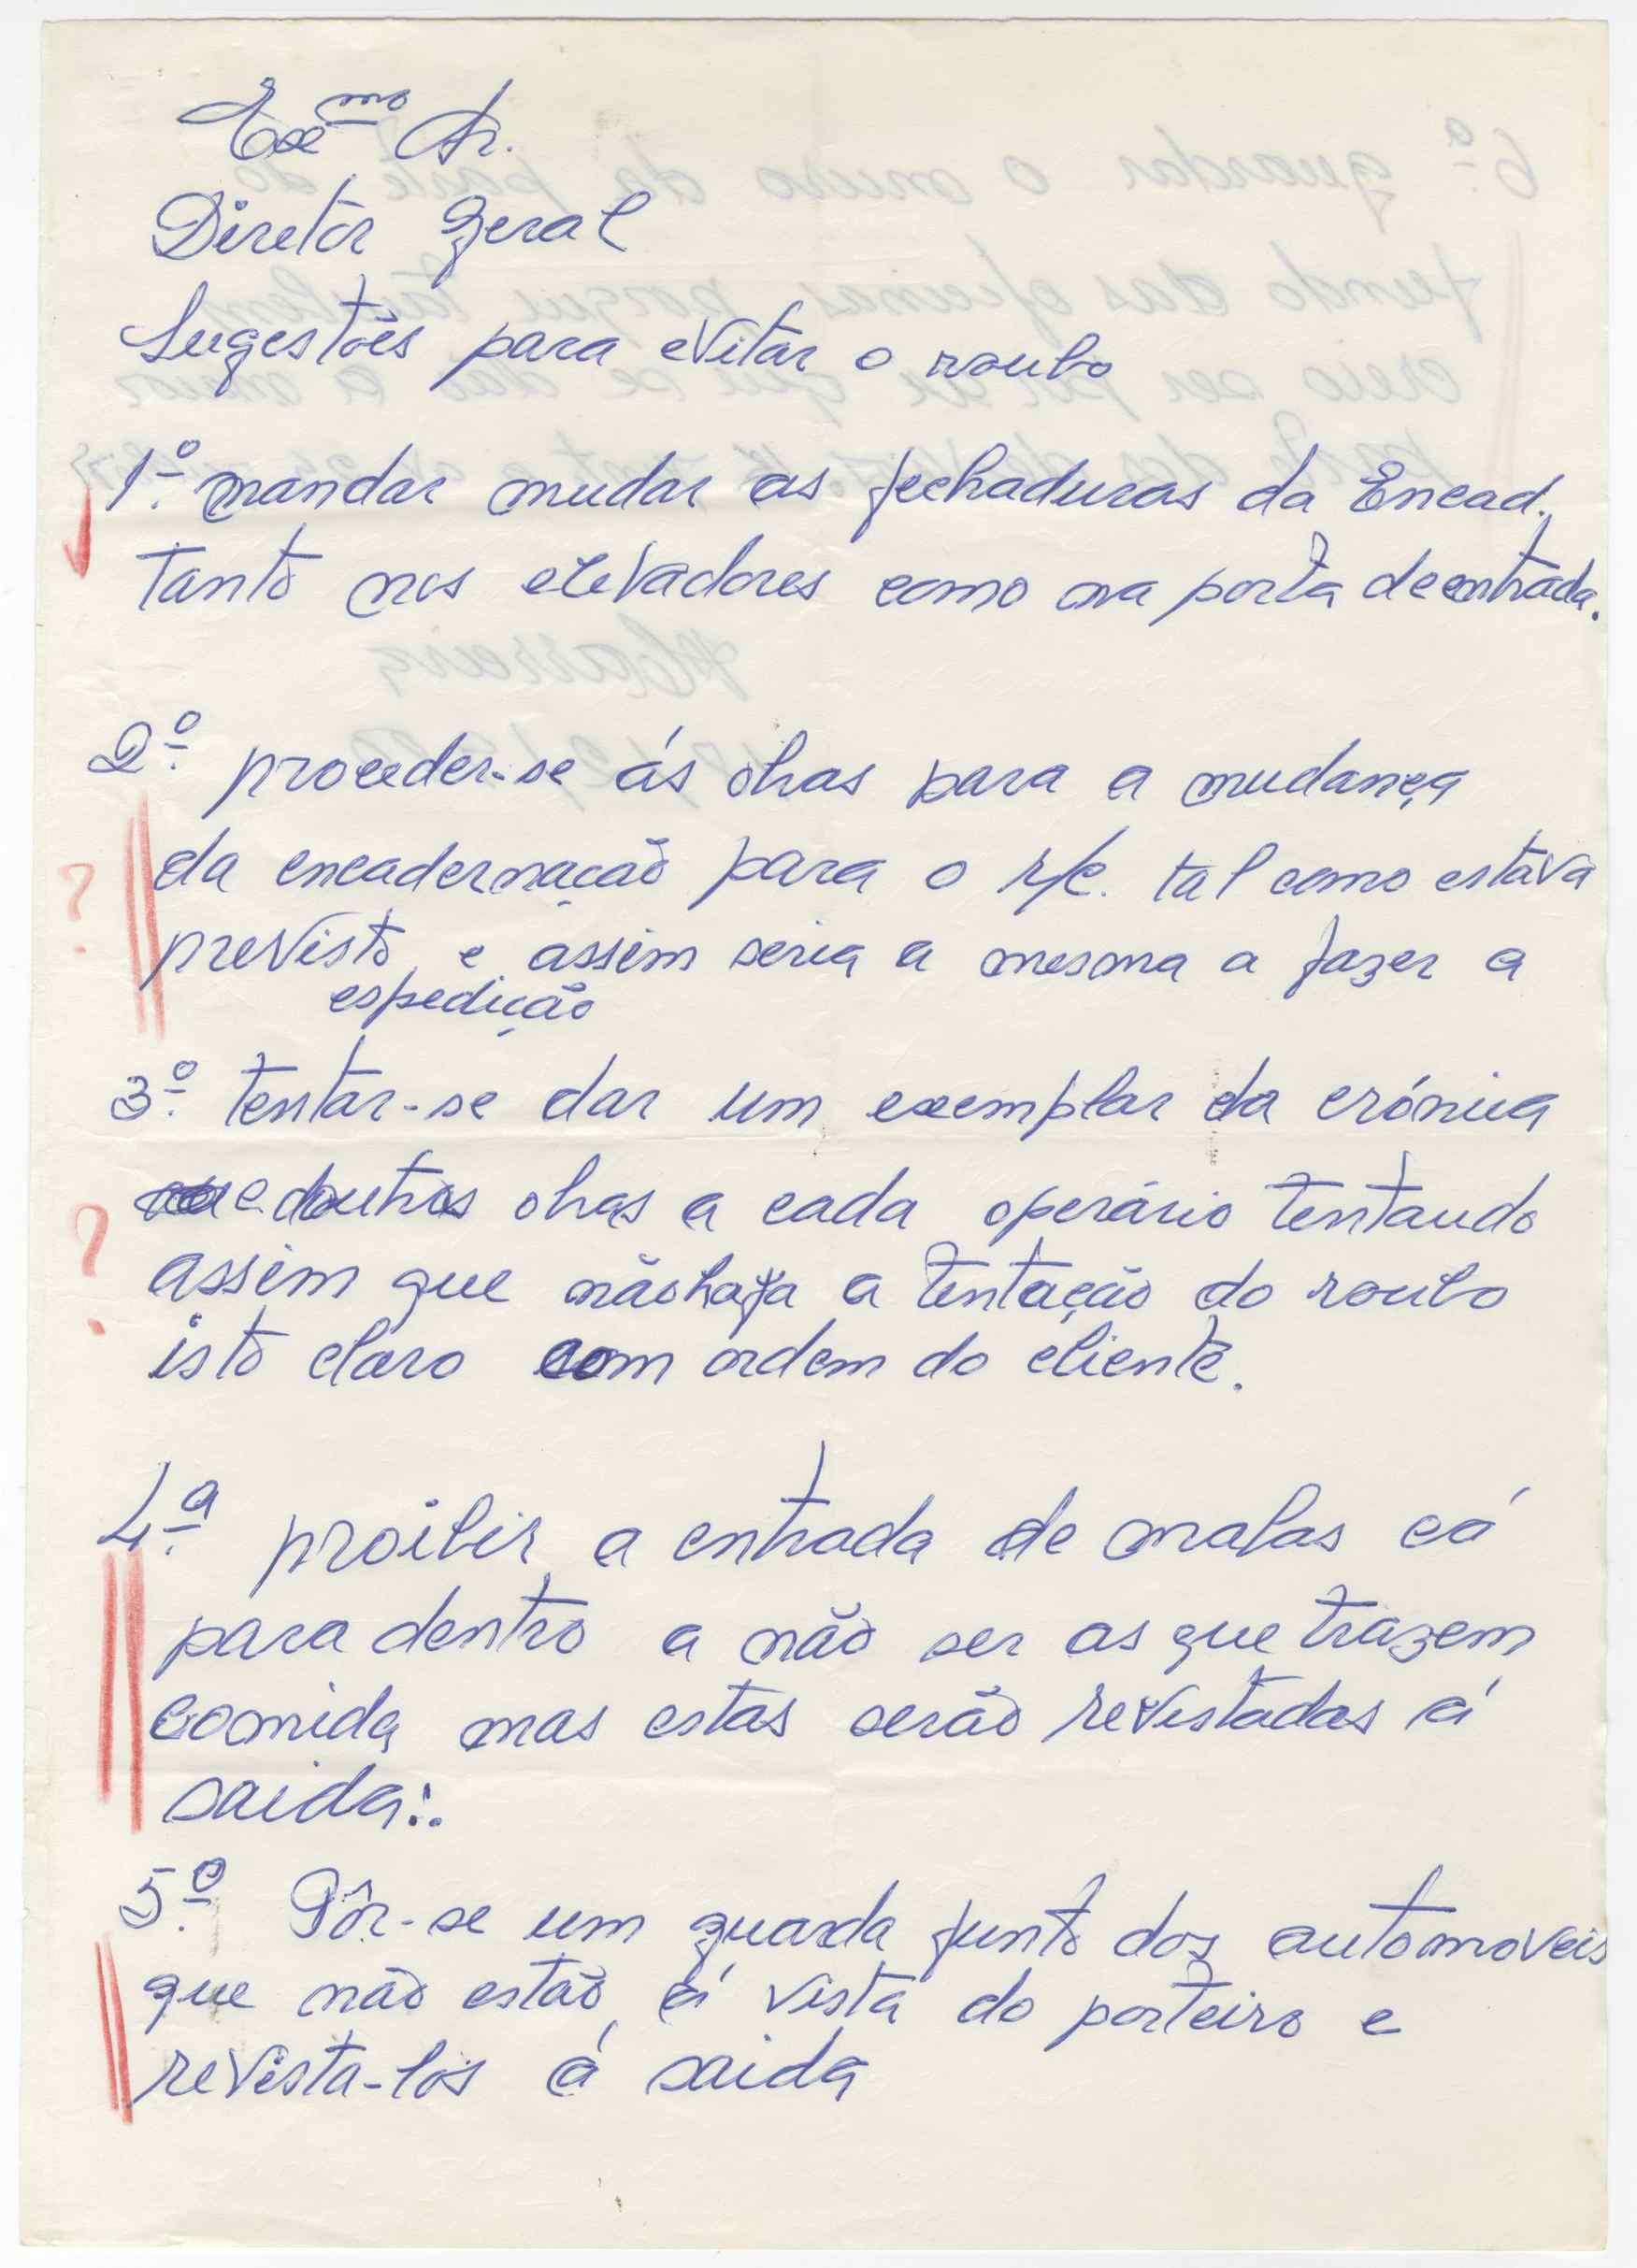 Exᵐᵒ Sr.
Diretor geral
Sugestões para evitar o roubo
1.º mandar mudar as fechaduras da Encad.
tanto nos elevadores como na porta de entrada.
2.º proceder-se ás obras para a mudança
da encadernação para o r/c. tal como estava
previsto e assim seria a mesma a fazer a
espedição
3.º tentar-se dar um exemplar da crónica
e doutras obras a cada operário tentando
assim que não haja a tentação do roubo
isto claro com ordem do cliente.
4.ª proibir a entrada de malas cá
para dentro a não ser as que trazem
comida mas estas serão revistadas á
saida:.
5.º Pôr-se um guarda junto dos automoveis
que não estão á vista do porteiro e
revista-los á saida
?
?